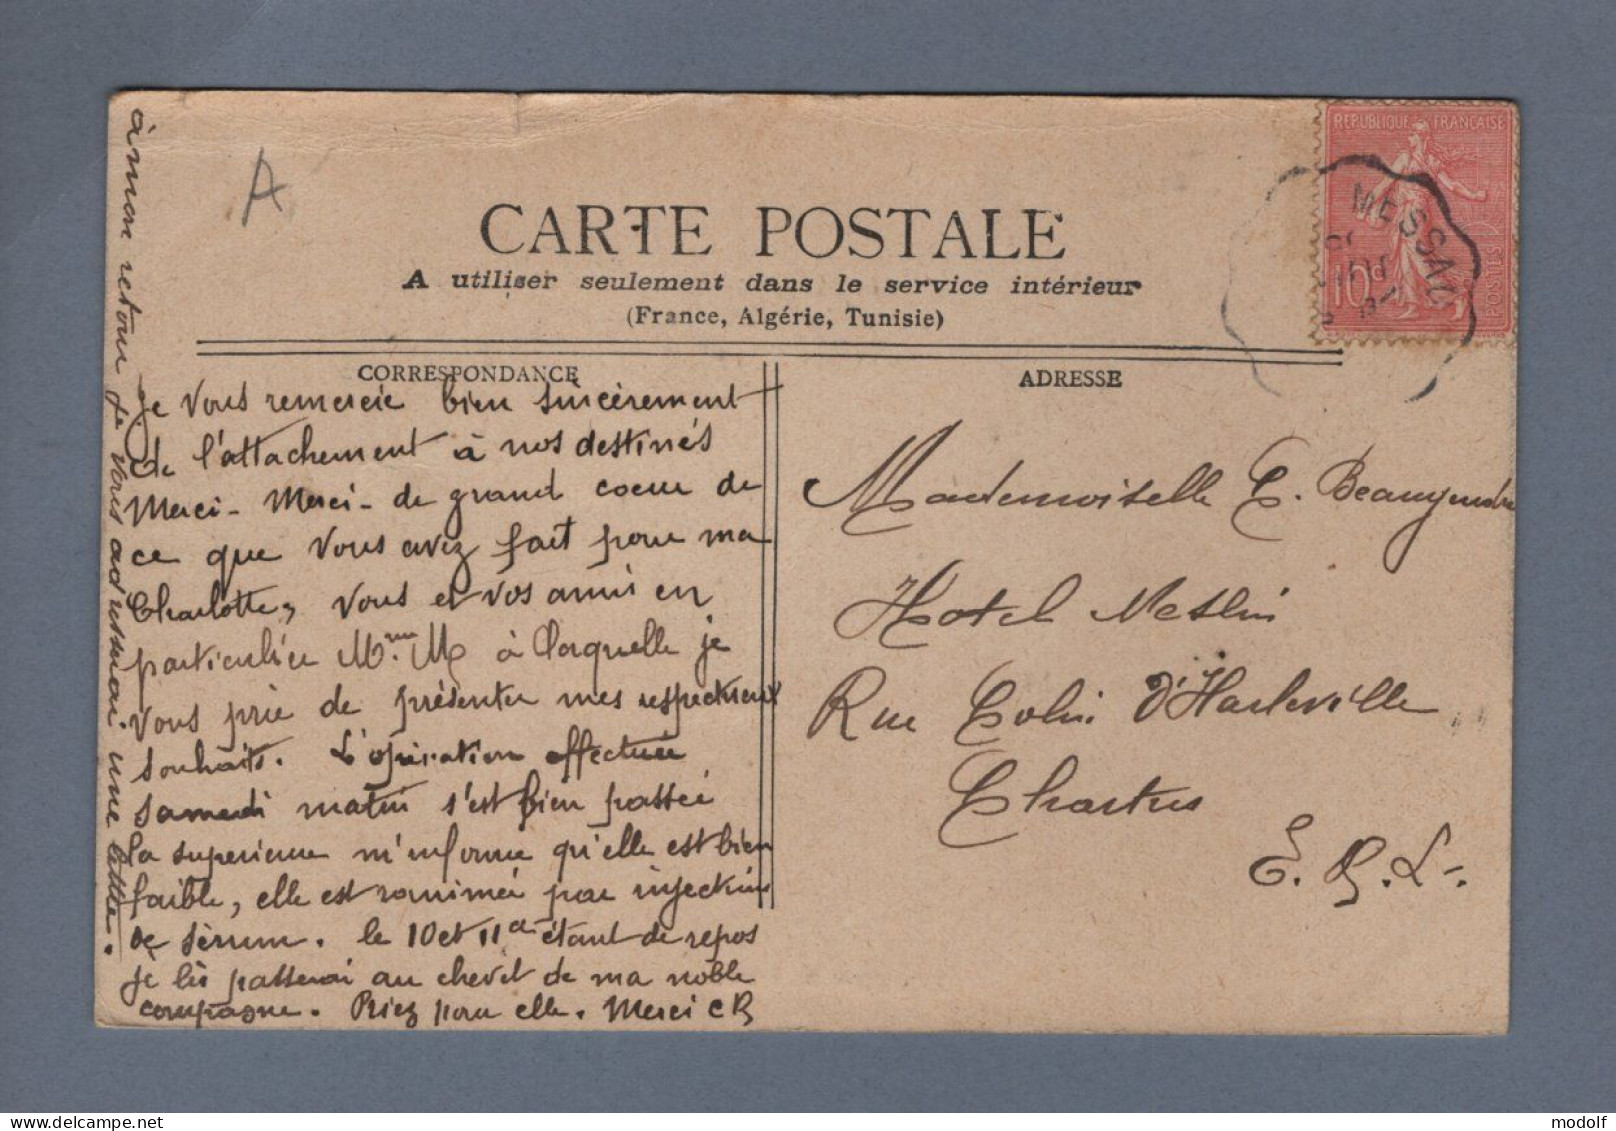 A
CARTE POSTALE
A utiliser seulement dans le service intérieur
(France, Algérie, Tunisie)
REPUBLIQUE FRANÇAISE
10c
POSTES
MESSAC
CORRESPONDANCE
Je Vous remercie bien sincèrement
de l'attachement à nos destinés
Merci - Merci - de grand coeur de
ce que Vous avez fait pour ma
Charlotte, Vous et vos amis en
particulier Mme M à laquelle je
Vous prie de présenter mes respectueux
souhaits. L'opération effectuée
samedi matin s'est bien passée
la superieure m'informe qu'elle est bien
faible, elle est ranimée par injection
de sèrum. le 10 et 11 étant de repos
je les passerai au chevet de ma noble
compagne. Priez pour elle. Merci CB
à mon retour je vous adresserai une lettre.
ADRESSE
Mademoiselle C. Beaugendre
Hotel Meslin
Rue Colin d'Harleville
Chartres
E. & L.
modolf